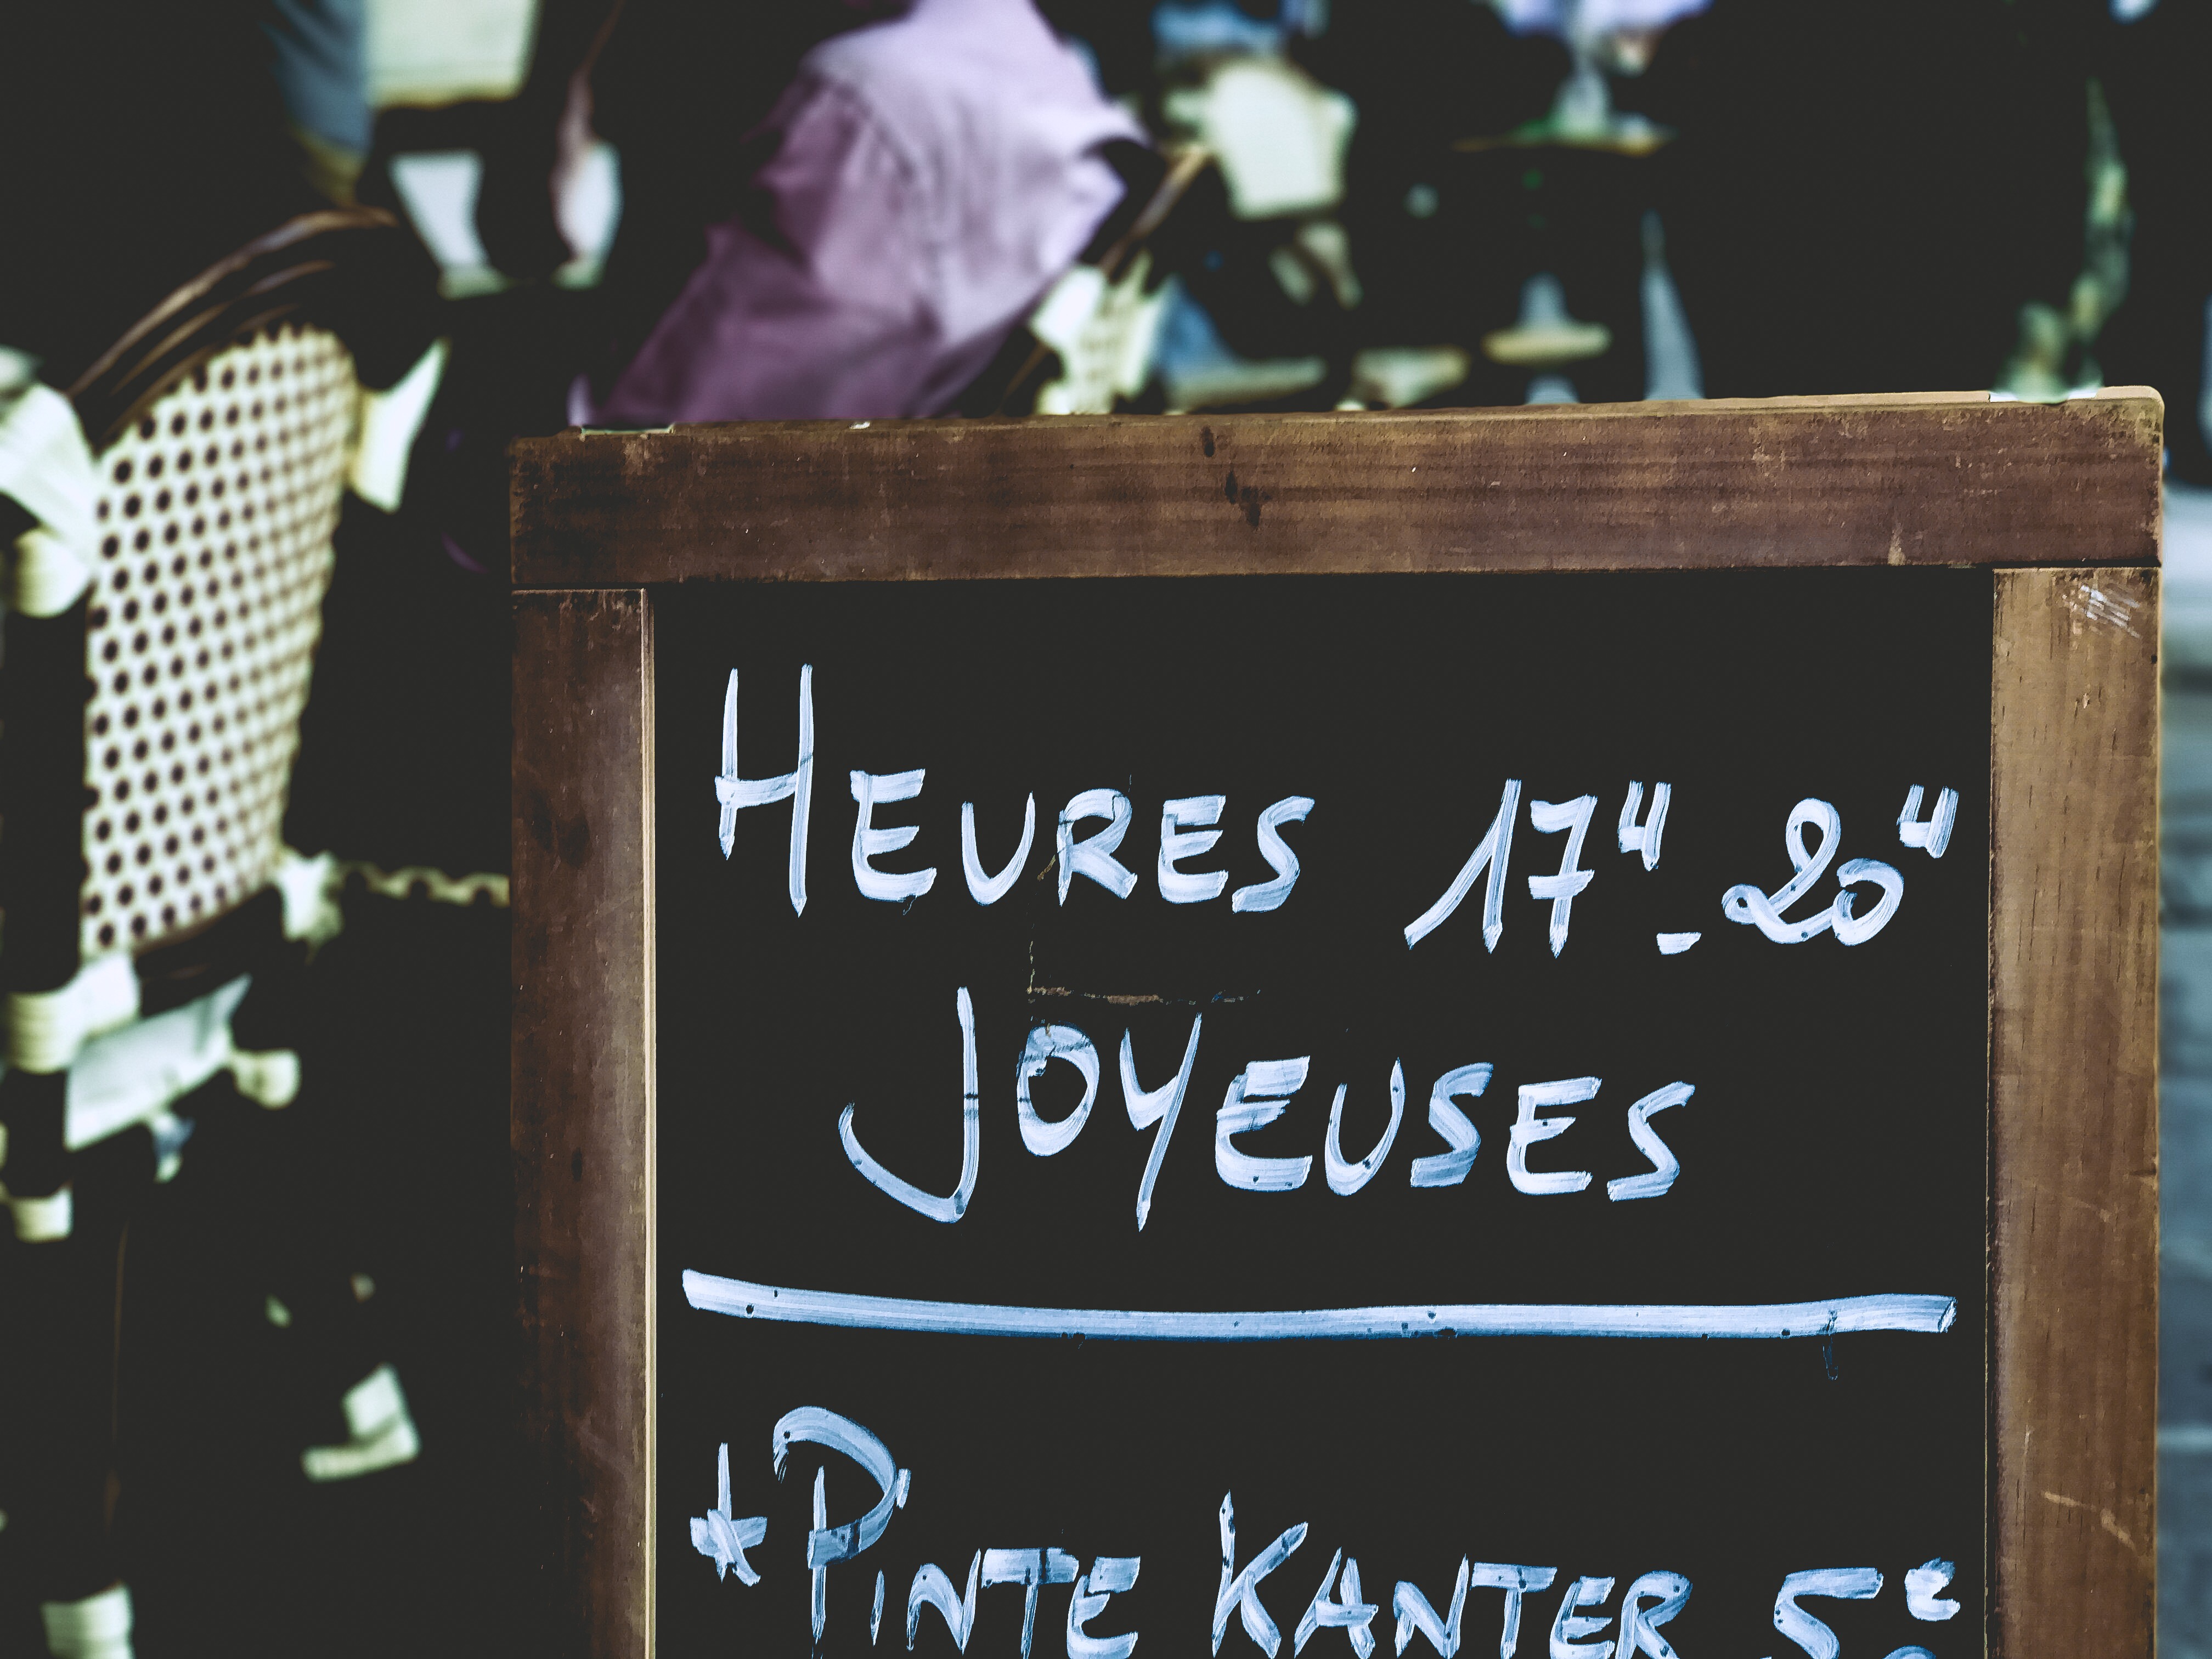 HEURES 17H-20H
JOYEUSES
*PINTE KANTER 5€